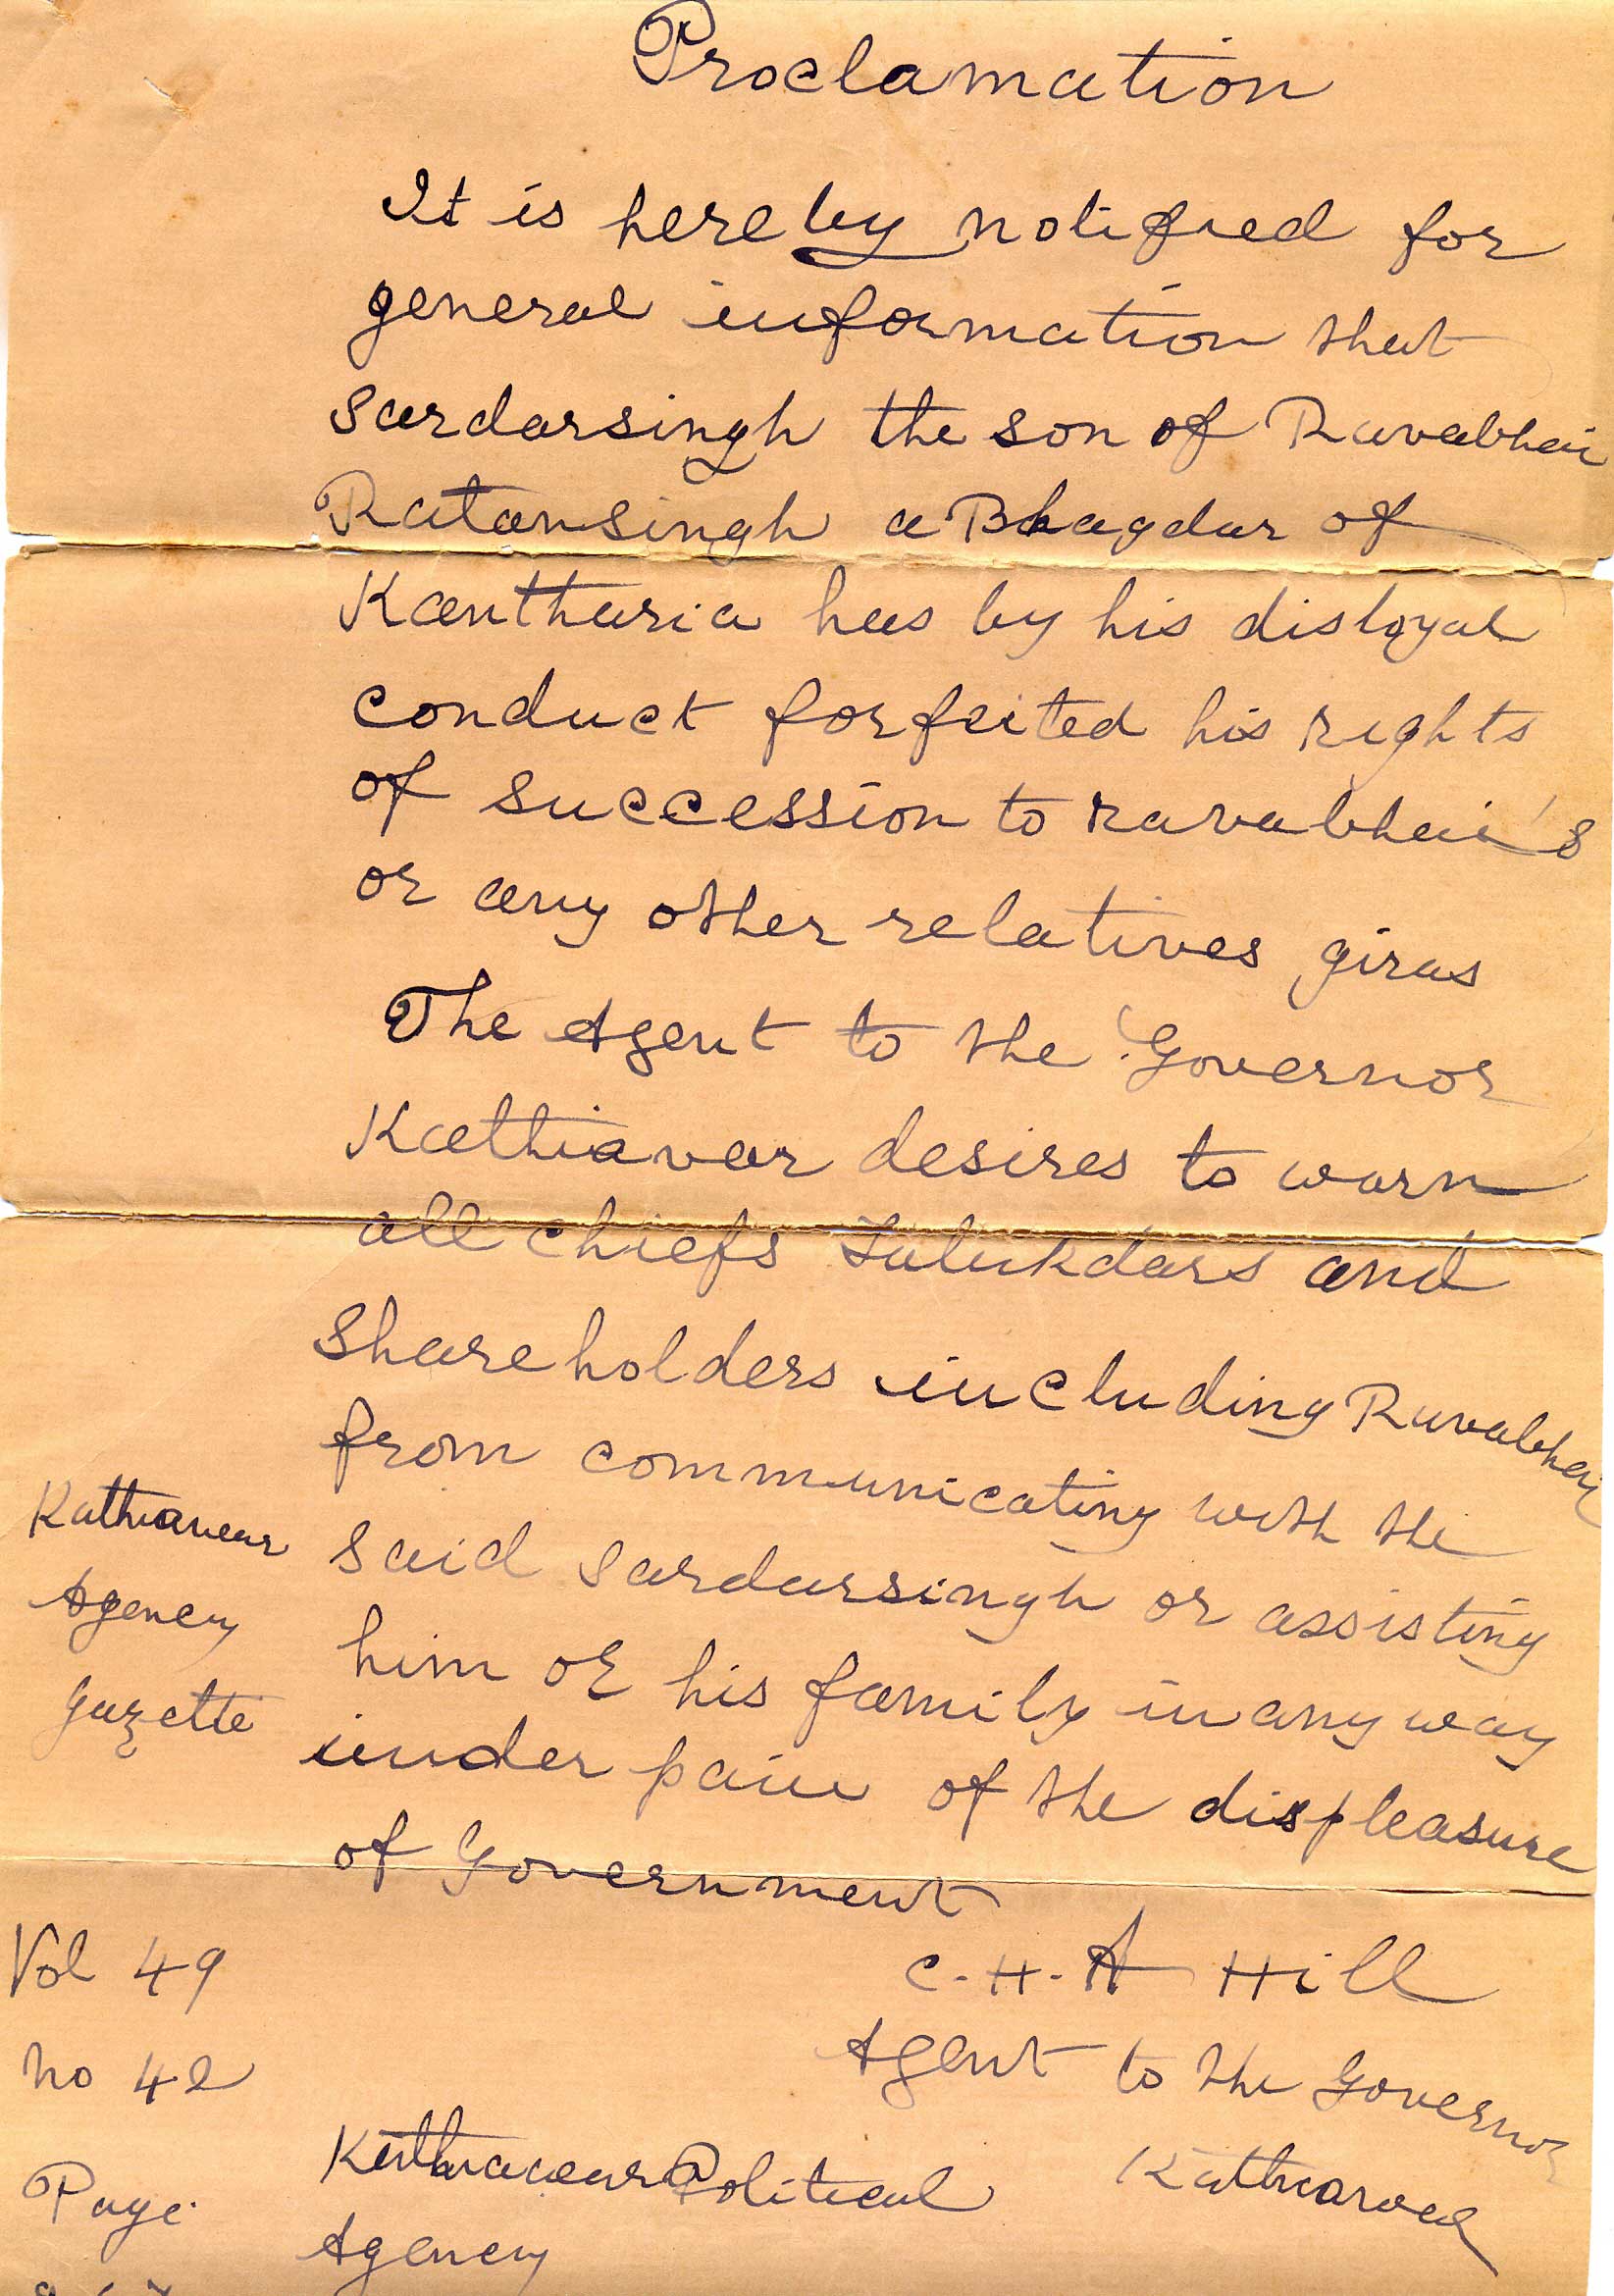 Proclamation
It is hereby notified for
general information that
Sardarsingh the son of Ravabhai
Ratansingh a Bhagdar of
Kantharia has by his disloyal
conduct forfeited his rights
of succession to ravabhai's
or any other relatives giras
The Agent to the Governor
Kathiavar desires to warn
all chiefs Talukdars and
Shareholders including Ravabhai
from communicating with the
said Sardarsingh or assisting
him or his family in any way
under pain of the displeasure
of Government
C. H. A Hill
Agent to the Governor
Kathiawar
Kathiawar Political
Agency
Kathiawar
Agency
Gazette
Vol 49
No 42
Page